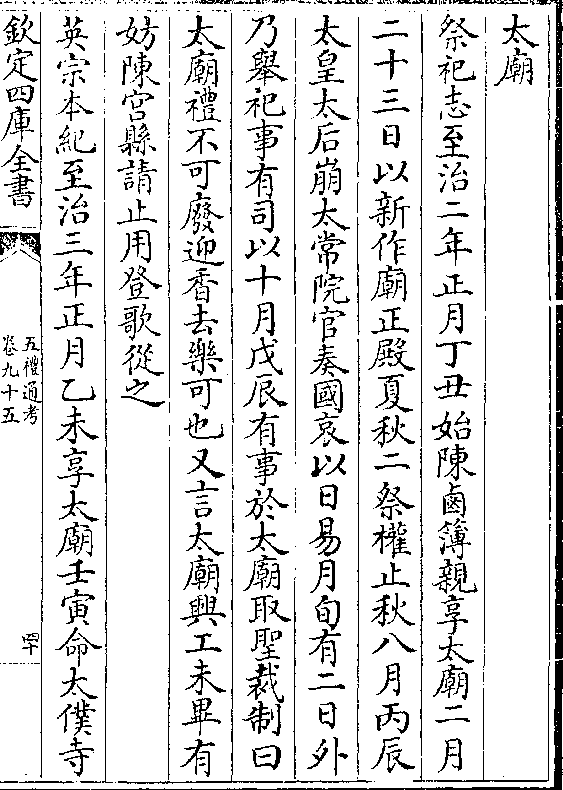 太廟
祭祀志至治二年正月丁丑始陳鹵簿親享太廟二月
二十三日以新作廟正殿夏秋二祭權止秋八月丙辰
太皇太后崩太常院官奏國哀以日易月旬有二日外
乃舉祀事有司以十月戊辰有事於太廟取聖裁制曰
太廟禮不可廢迎香去樂可也又言太廟興工未畢有
妨陳宮縣請止用登歌從之
英宗本紀至治三年正月乙未享太廟壬寅命太僕寺
欽定四庫全書
五禮通考
卷九十五
四十